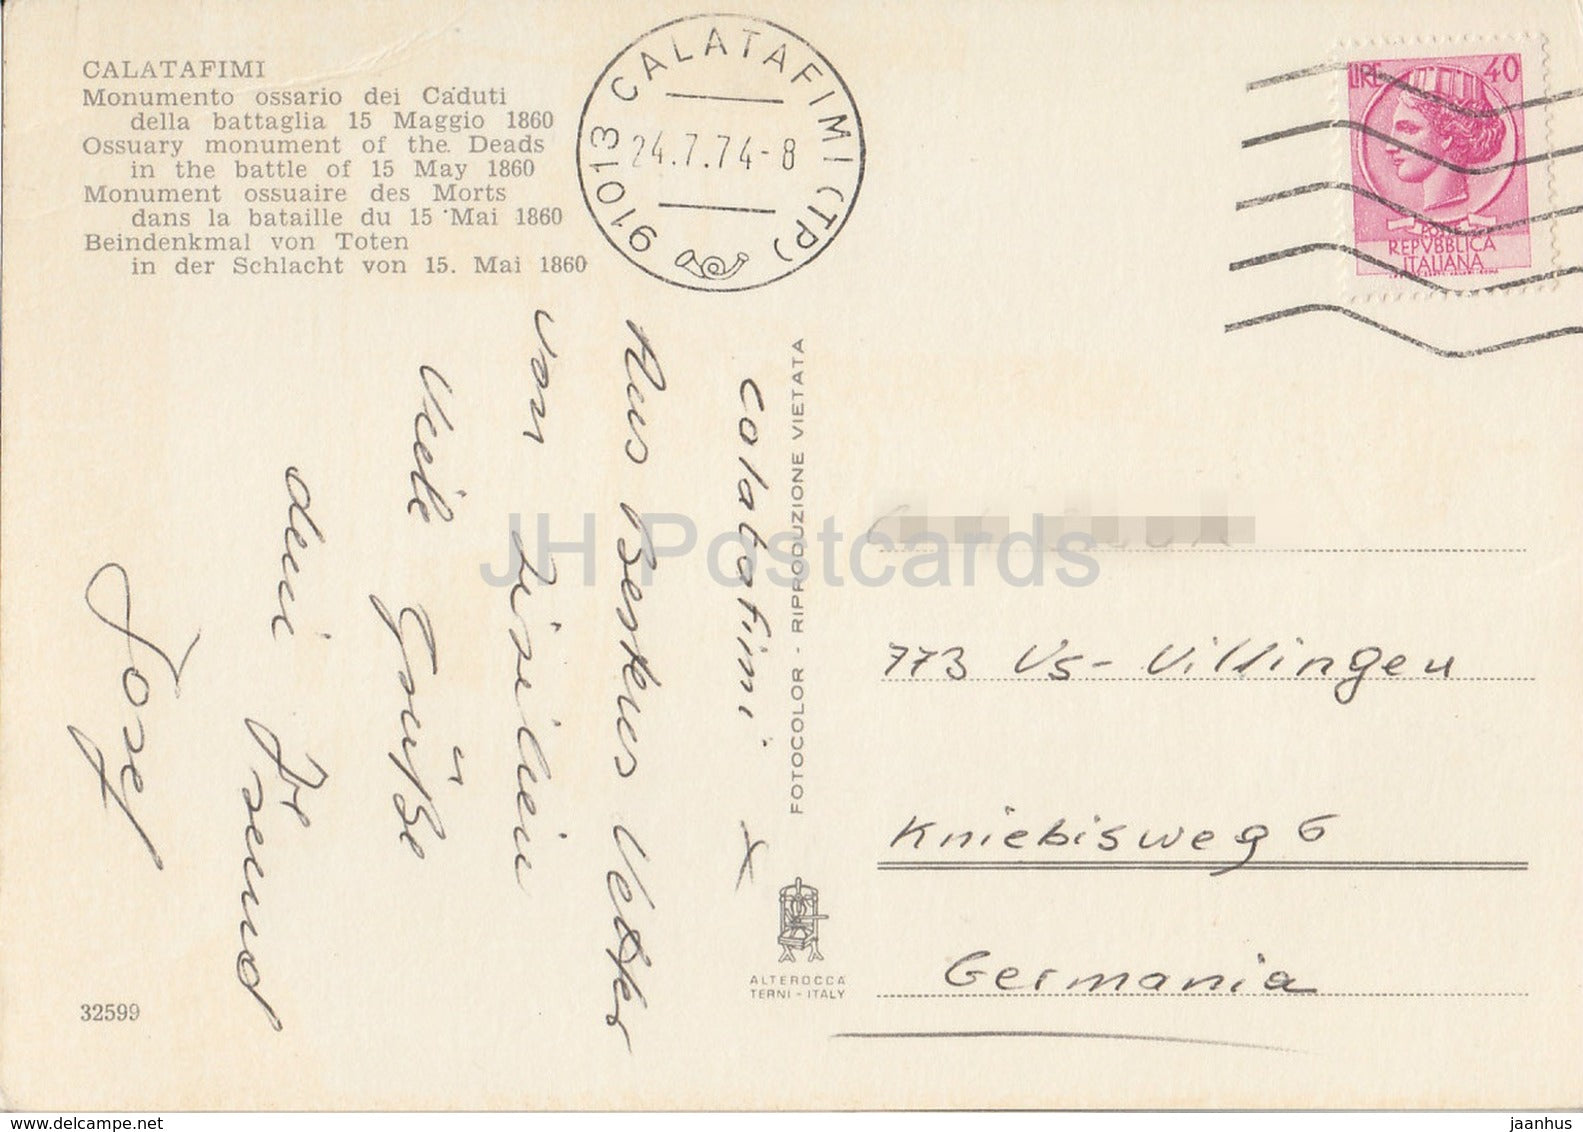 CALATAFIMI
Monumento ossario dei Caduti
della battaglia 15 Maggio 1860
Ossuary monument of the Deads
in the battle of 15 May 1860
Monument ossuaire des Morts
dans la bataille du 15 Mai 1860
Beindenkmal von Toten
in der Schlacht von 15. Mai 1860
91013 CALATAFIMI (TP)
24.7.74-8
LIRE 40
POSTE
REPVBBLICA
ITALIANA
Calatafimi
Aus
von Sizilien
Viele Grüße
dein Freund
Josef
FOTOCOLOR - RIPRODUZIONE VIETATA
ALTEROCCA
TERNI - ITALY
773 VS-Villingen
Kniebisweg 6
Germania
32599
JH Postcards
www.delcampe.net
jaanhus